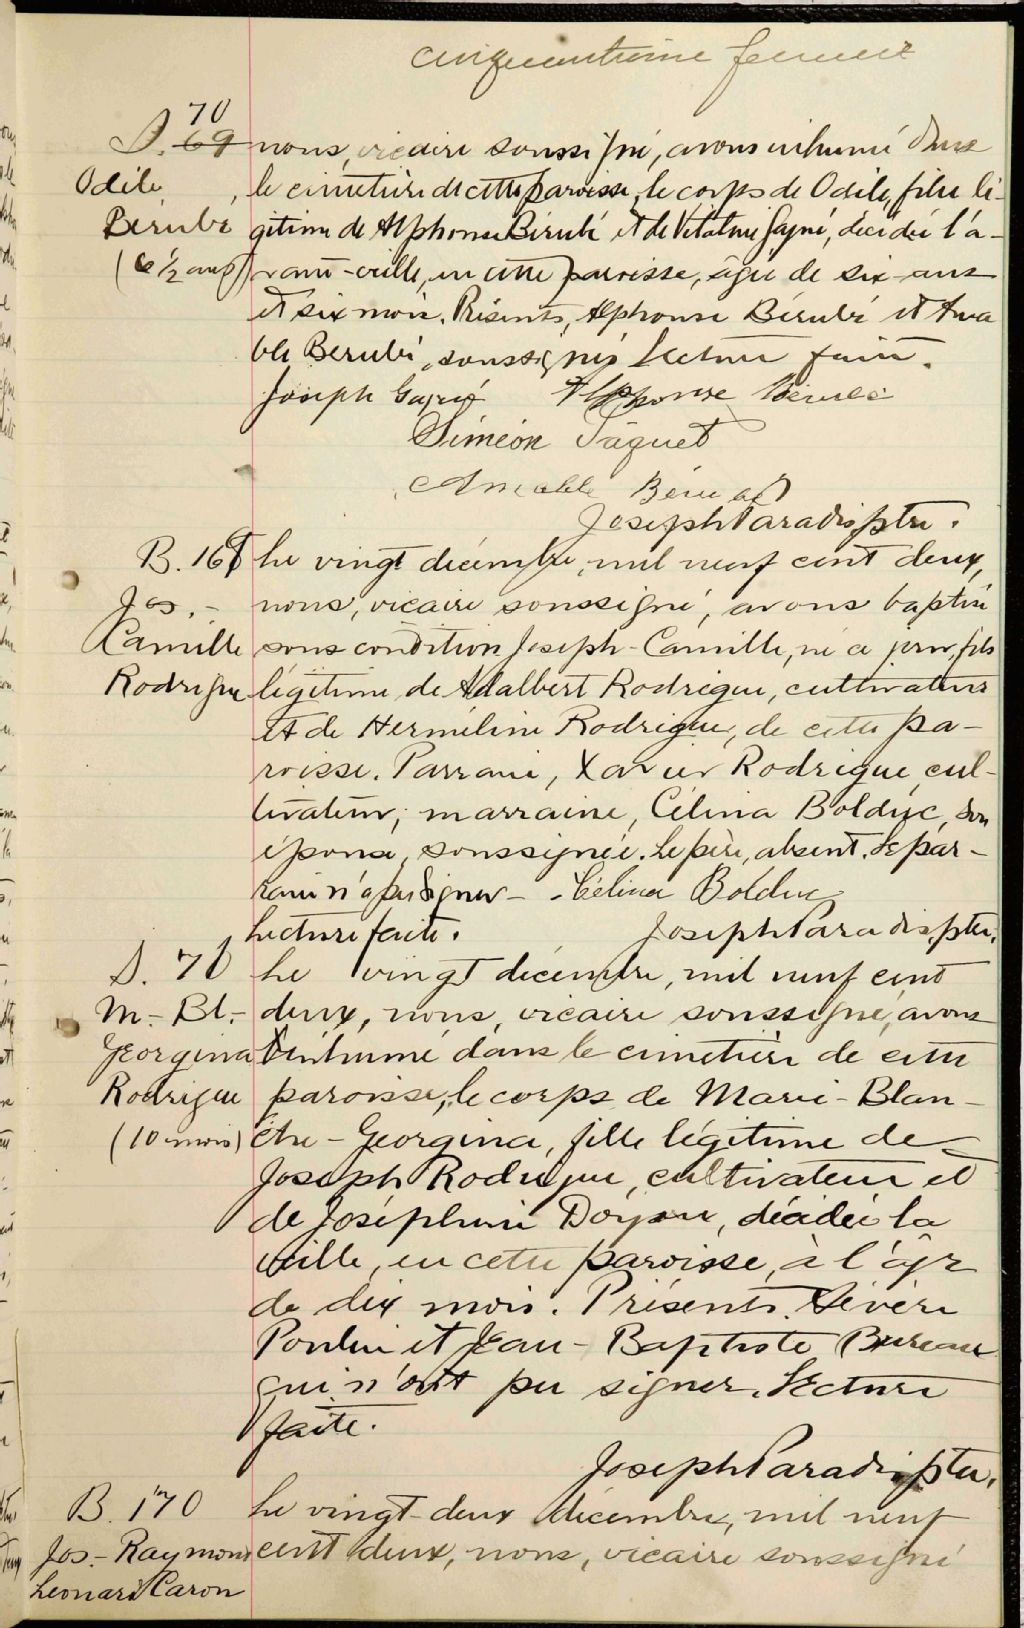 cinquantième feuillet
70
S. 69 nous, vicaire soussigné, avons inhumé dans
Odile le cimetière de cette paroisse, le corps de Odile, fille lé-
Bérubé gitime de Alphonse Bérubé et de Vitaline Gagné, décédée l'a-
(6 1/2 ans) vant-veille, en cette paroisse, âgée de six ans
et six mois. Présents, Alphonse Bérubé et Ama
ble Berubé, soussignés Lecture faite.
Joseph Gagné Alphonse Bérubé
Siméon Paquet
Amable Bérubé
Joseph Paradis, ptre.
B. 169 Le vingt décembre, mil neuf cent deux,
Jos.- nous, vicaire soussigné, avons baptisé
Camille sous condition Joseph-Camille, né ce jour, fils
Rodrigue légitime de Adalbert Rodrigue, cultivateur
et de Herméline Rodrigue, de cette pa-
roisse. Parrain, Xavier Rodrigue, cul-
tivateur; marraine, Célina Bolduc, son
épouse, soussignée. Le père, absent. Le par-
rain n'a pu signer - Célina Bolduc
Lecture faite. Joseph Paradis, ptre.
S. 71 Le vingt décembre, mil neuf cent
M.- Bl.- deux, nous, vicaire soussigné, avons
Georgina inhumé dans le cimetière de cette
Rodrigue paroisse, le corps de Marie-Blan-
(10 mois) che-Georgina, fille légitime de
Joseph Rodrigue, cultivateur et
de Joséphine Doyon, décédée la
veille, en cette paroisse, à l'âge
de dix mois. Présents Sévère
Poulin et Jean-Baptiste Bureau
qui n'ont pu signer. Lecture
faite.
Joseph Paradis, ptre.
B. 170 Le vingt-deux décembre, mil neuf
Jos.- Raymond cent deux, nous, vicaire soussigné
Leonard Caron